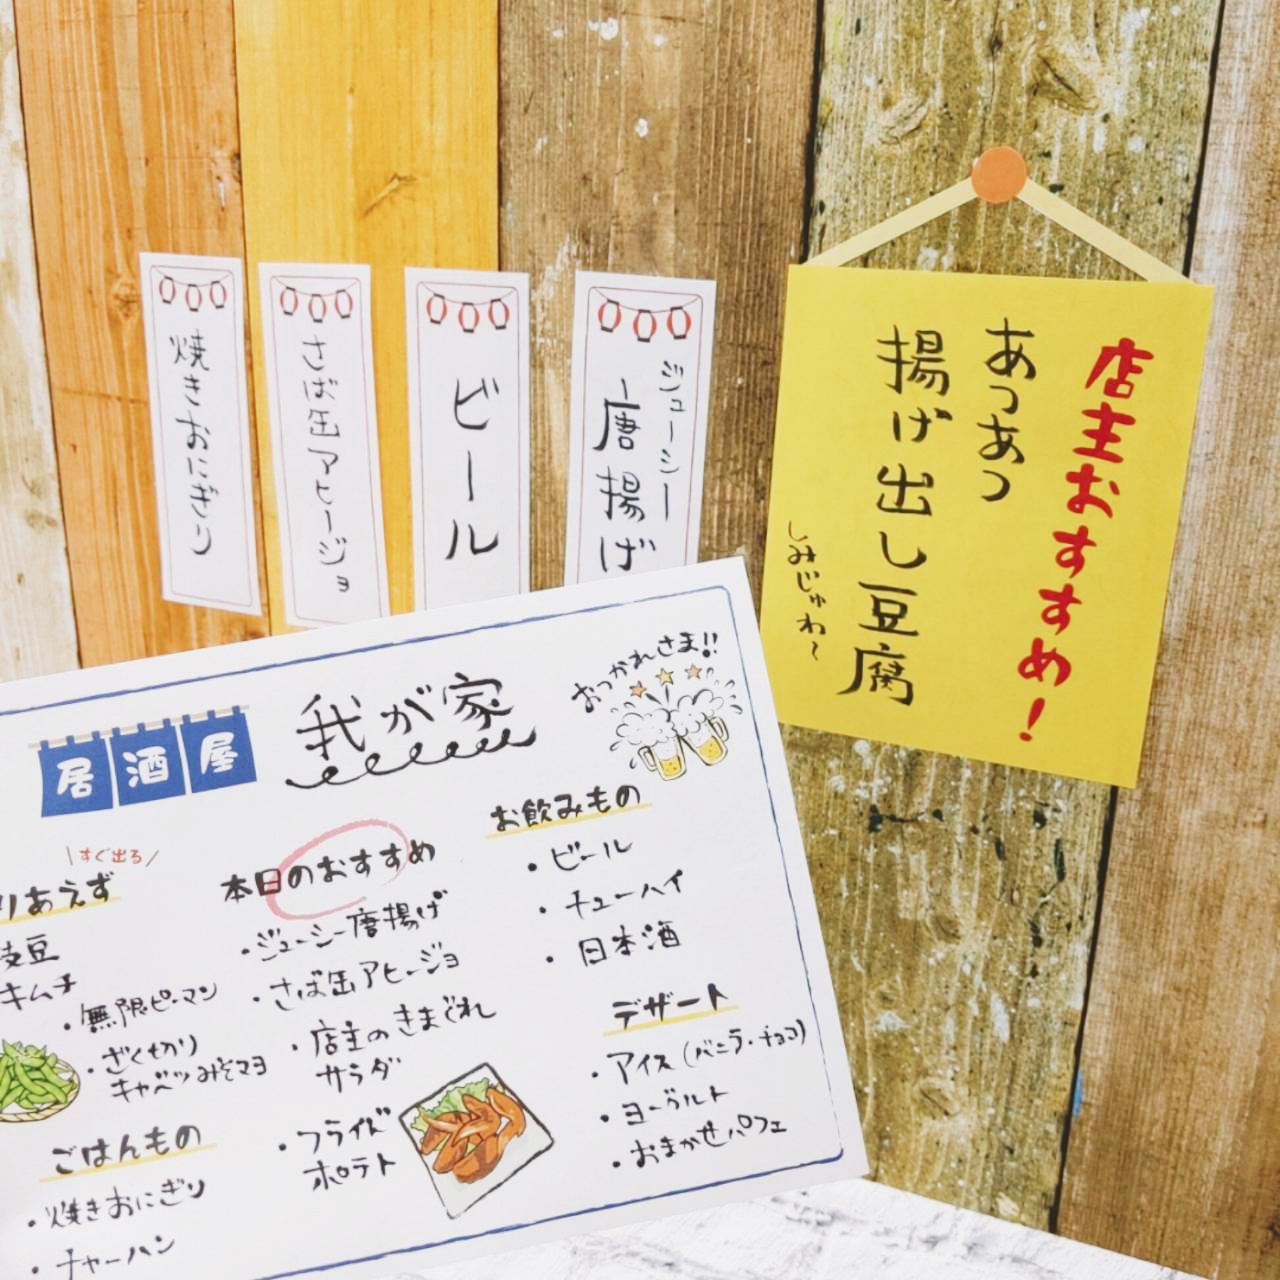 店主おすすめ!
あつあつ
揚げ出し豆腐
しみじゅわ~
ジューシー
唐揚げ
ビール
さば缶アヒージョ
焼きおにぎり
居酒屋
我が家
おつかれさま!!
すぐ出る
りあえず
枝豆
キムチ
・無限ピーマン
・ざく切り
キャベツみそマヨ
ごはんもの
・焼きおにぎり
・チャーハン
本日のおすすめ
・ジューシー唐揚げ
・さば缶アヒージョ
・店主のきまぐれ
サラダ
・フライド
ポテト
お飲みもの
・ビール
・チューハイ
・日本酒
デザート
・アイス(バニラ・チョコ)
・ヨーグルト
・おまかせパフェ